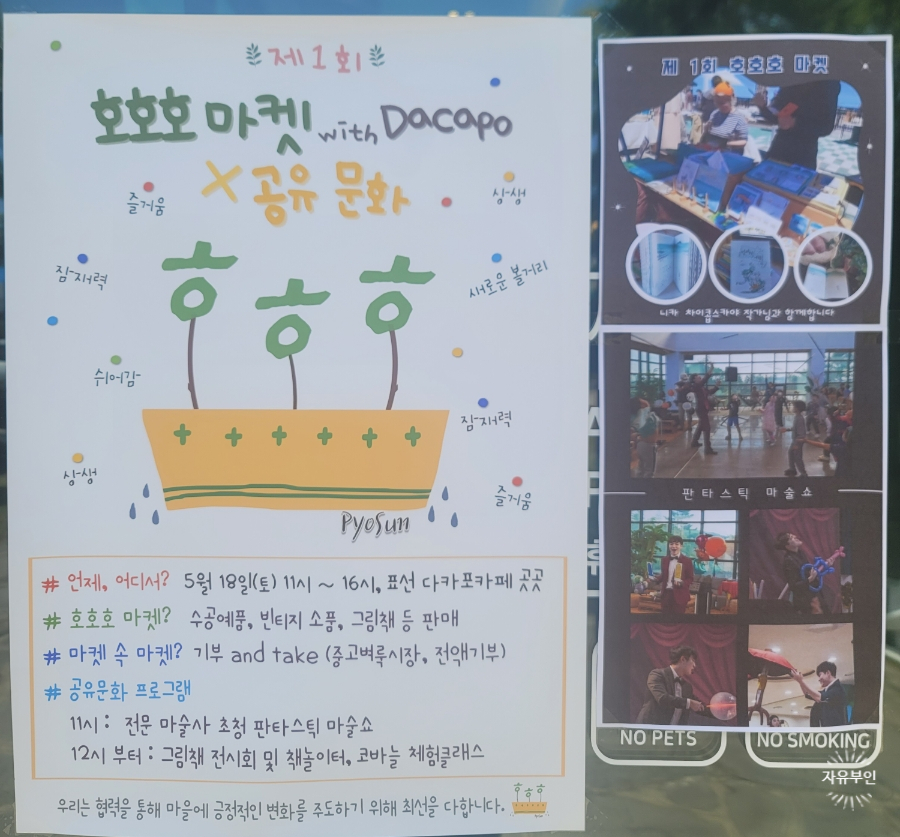 제 1 회
호호호 마켓 with Dacapo
X 공유 문화
즐거움
상생
잠재력
새로운 볼거리
쉬어감
잠재력
상생
즐거움
ㅎ ㅎ ㅎ
Pyosun
# 언제, 어디서? 5월 18일(토) 11시 ~ 16시, 표선 다카포카페 곳곳
# 호호호 마켓? 수공예품, 빈티지 소품, 그림책 등 판매
# 마켓 속 마켓? 기부 and take (중고벼룩시장, 전액기부)
# 공유문화 프로그램
11시 : 전문 마술사 초청 판타스틱 마술쇼
12시 부터 : 그림책 전시회 및 책놀이터, 코바늘 체험클래스
우리는 협력을 통해 마을에 긍정적인 변화를 주도하기 위해 최선을 다합니다.
제 1회 호호호 마켓
니카 차이콥스카야 작가님과 함께합니다
판타스틱 마술쇼
NO PETS
NO SMOKING
자유부인